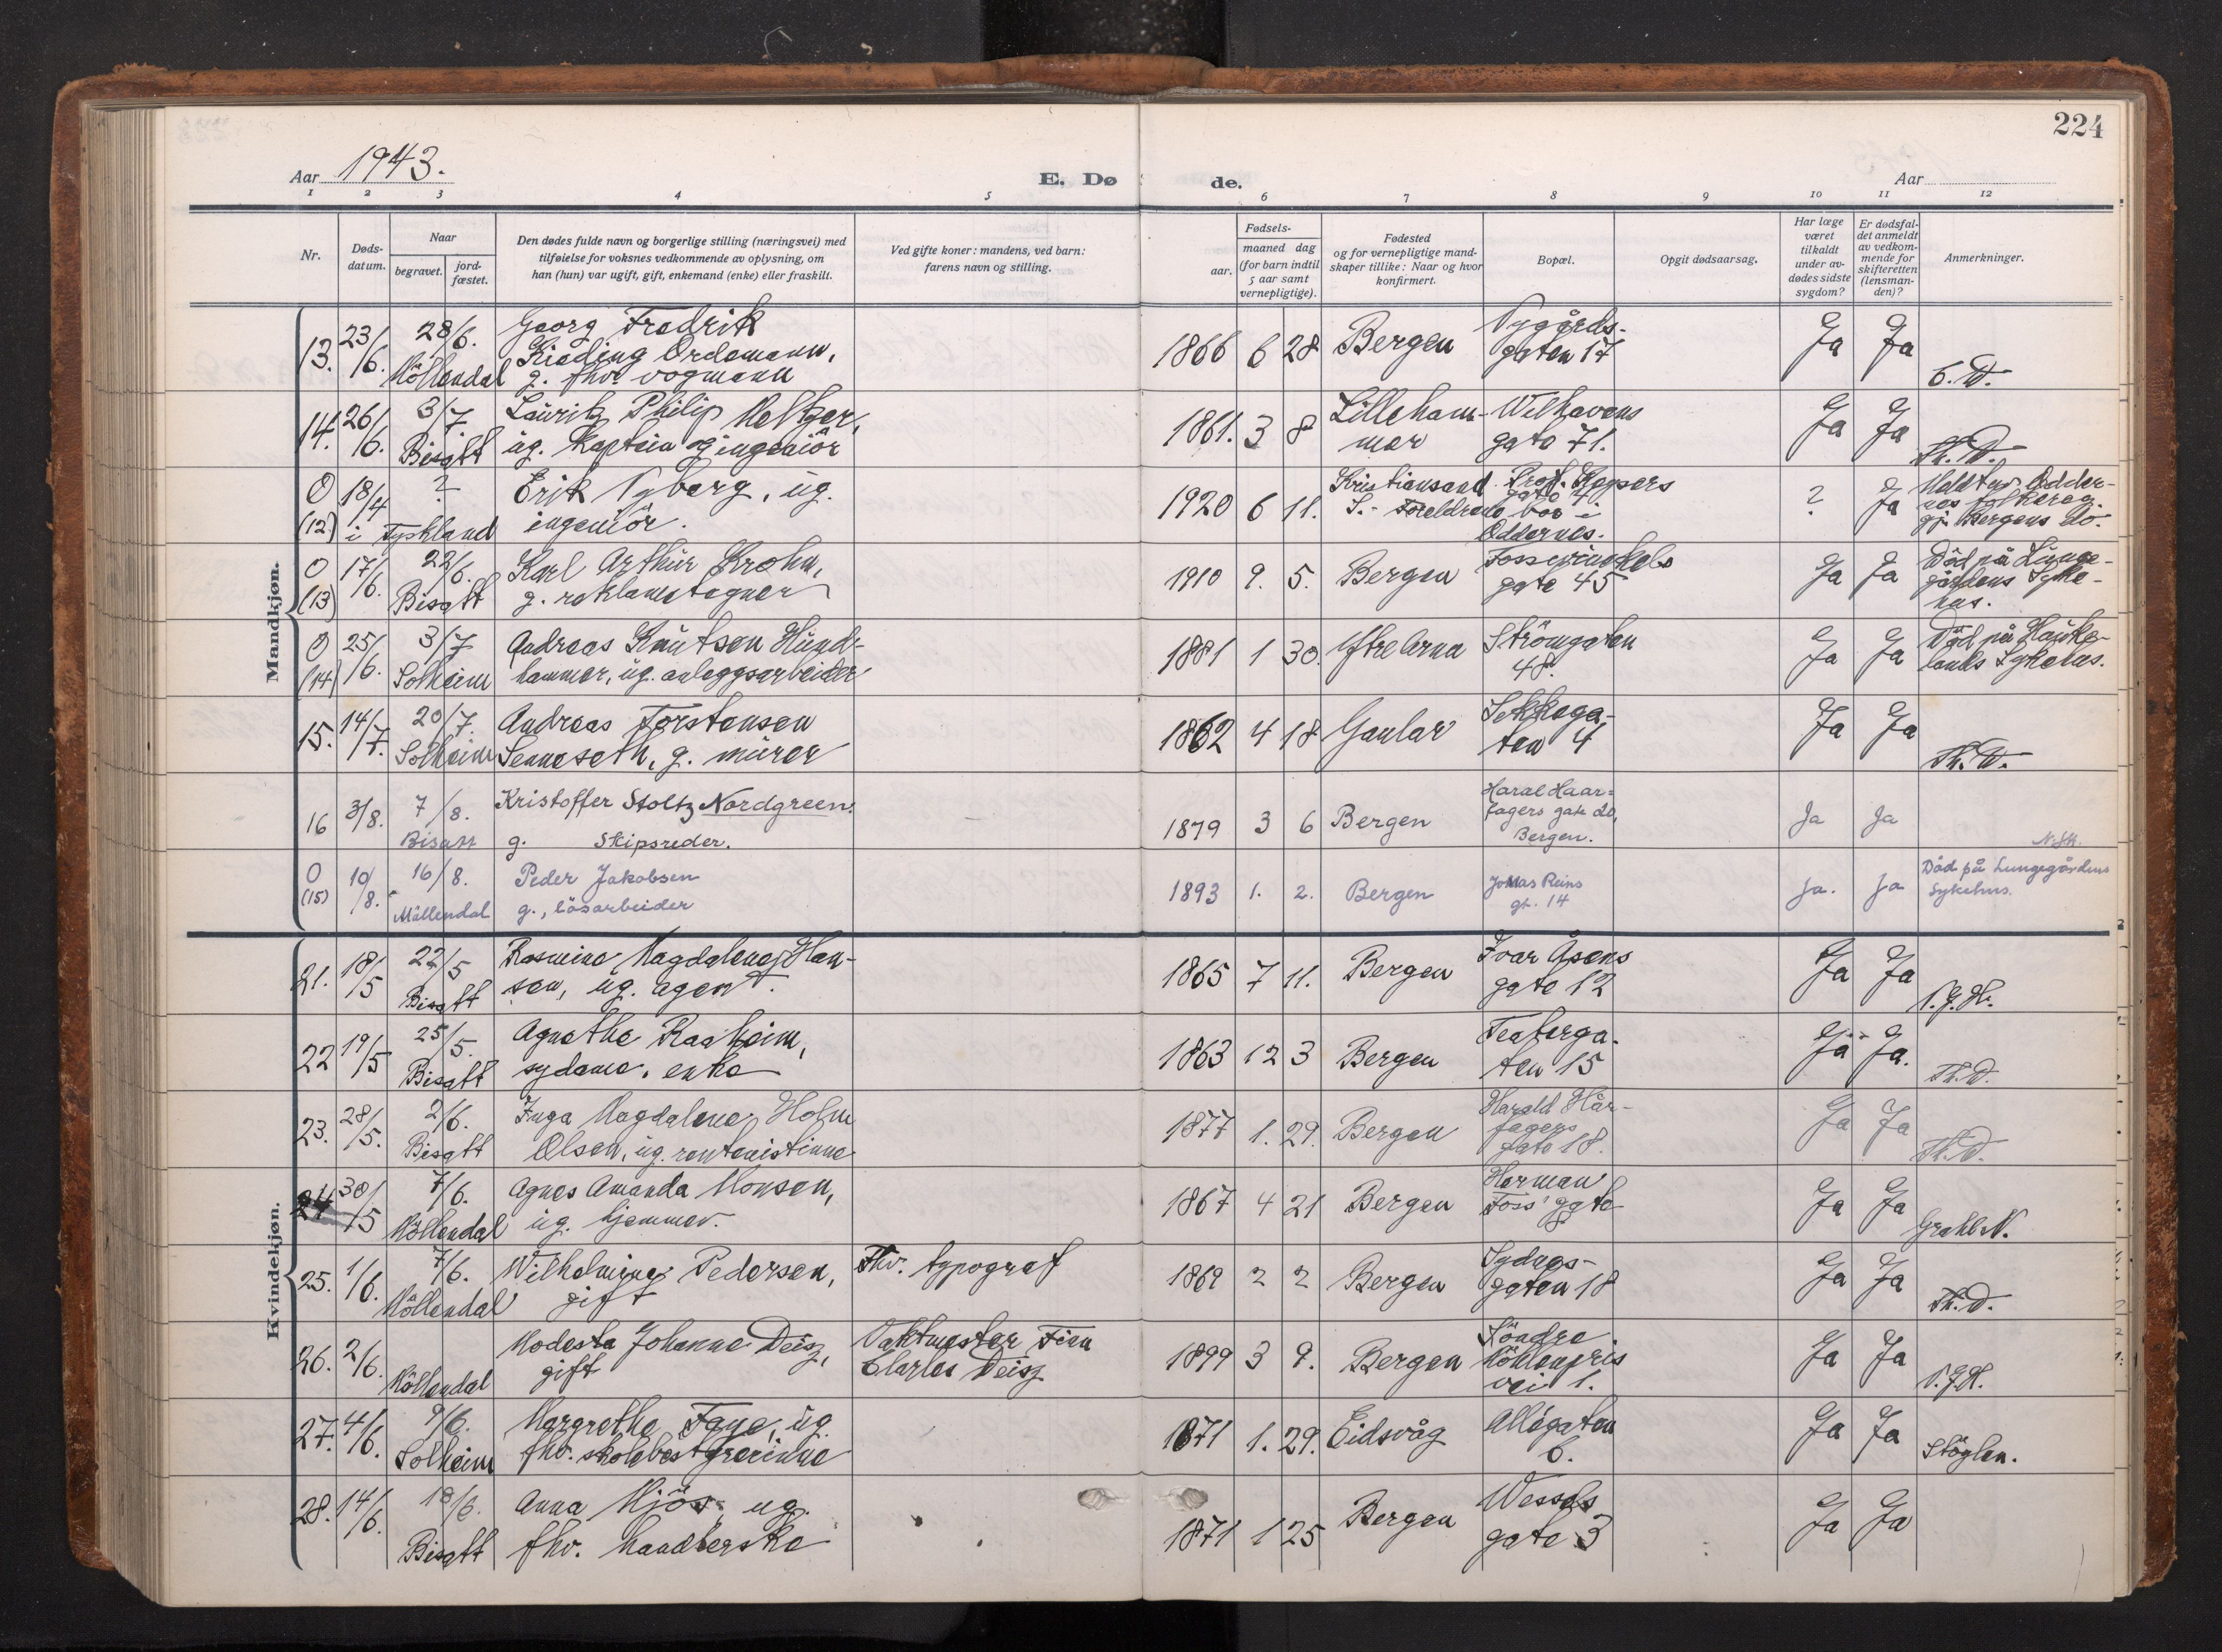 224
Aar 1943.
E. Dø
de.
Aar
1 2 3 4 5 6 7 8 9 10 11 12
Nr.
Døds-
datum.
Naar
begravet.
jord-
fæstet.
Den dødes fulde navn og borgerlige stilling (næringsvei) med
tilføielse for voksnes vedkommende av oplysning, om
han (hun) var ugift, gift, enkemand (enke) eller fraskilt.
Ved gifte koner: mandens, ved barn:
farens navn og stilling.
Fødsels-
aar.
maaned dag
(for barn indtil
5 aar samt
vernepligtige).
Fødested
og for vernepligtige mand-
skaper tillike: Naar og hvor
konfirmert.
Bopæl.
Opgit dødsaarsag.
Har læge
været
tilkaldt
under av-
dødes sidste
sygdom?
Er dødsfal-
det anmeldt
av vedkom-
mende for
skifteretten
(lensman-
den)?
Anmerkninger.
Mandkjøn.
13. 23/6. 28/6. Georg Fredrik
Ordemann,
Möllendal g. fhv. vognmann
1866 6 28 Bergen Nygårds-
gaten 17
Ja Ja
14. 26/6. 3/7. Lauritz Philip Meltzer,
Bisatt ug. kaptein og ingeniör
1861. 3 8 Lilleham-
mer
Welhavens
gate 71.
Ja Ja
Th. D.
0 (12) 18/4 ? Erik Nyberg, ug.
i Tyskland ingeniör.
1920 6 11. Kristiansand
S. - Foreldrene bor i
Oddernes.
Prof. Keysers
gate
? Ja
Meldt av Odder-
nes
Bergens
0 (13) 17/6. 22/6. Karl Arthur Krohn,
Bisatt g. reklametegner
1910 9. 5. Bergen Fosswinckels
gate 45
Ja Ja
Död på Lunge-
gårdens Syke-
hus.
0 (14) 25/6. 3/7 Andreas Knutsen Hund-
Solheim hammer, ug. anleggsarbeider
1881 1 30. Ytre Arna Strömgaten
48.
Ja Ja
Död på Hauke-
lands Sykehus.
15. 14/7. 20/7. Andreas Torstensen
Solheim Senneseth, g. murer
1862 4 18 Gaular Sekkega-
ten 4
Ja Ja
Th. D.
16 3/8. 7/8. Kristoffer Stoltz Nordgreen.
Bisatt g. Skipsreder.
1879 3 6 Bergen Haral Haar=
fagers gate 20,
Bergen.
Ja Ja
0 (15) 10/8. 16/8. Peder Jakobsen
Möllendal g., lösarbeider
1893 1. 2. Bergen Jonas Reins
gt. 14
Ja. Ja
Död på Lungegårdens
Sykehus.
Kvindekjøn.
21. 18/5 22/5 Rasmine Magdalene Han-
Bisatt sen, ug. agent.
1865 7 11. Bergen Ivar Åsens
gate 12
Ja Ja
22 19/5 25/5. Agnethe Raaheim,
Bisatt sydame, enke
1863 12 3 Bergen Teaterga-
ten 15
Ja Ja.
Th. D.
23. 28/5. 2/6. Inga Magdalene Holm
Bisatt Olsen, ug. rentenistinne
1877 1. 29. Bergen Harald Hår-
fagers
gate 18.
Ja Ja
Th. D.
24 30/5 7/6. Agnes Amanda Monsen,
Möllendal ug. hjemmev.
1867 4 21 Bergen Herman
Foss' gate
8
Ja Ja
25. 1/6. 7/6. Wilhelmine Pedersen,
Möllendal gift
Fhv. typograf
1869 2 2 Bergen Sydnes-
gaten 18
Ja Ja
Th. D.
26. 2/6. Modesta Johanne Deisz,
Möllendal gift
Vaktmester Finn
Charles Deisz
1899 3 9. Bergen Söndre
Möhlenpris
vei 1.
Ja Ja
27. 4/6. 9/6. Margrethe Faye, ug.
Solheim fhv. skolebestyrerinne
1871 1. 29. Eidsvåg Allégaten
6.
Ja Ja
28. 14/6. 18/6. Anna Mjös, ug.
Bisatt fhv. handlerske
1871 1 25 Bergen Wessels
gate 3
Ja Ja